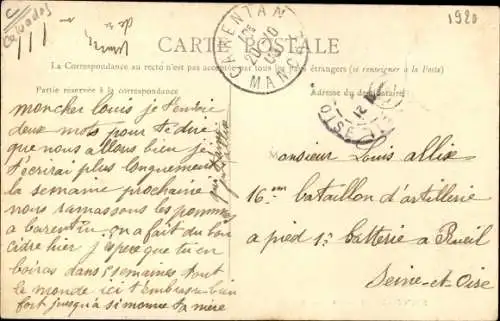 Calvados
1920
CARTE POSTALE
CARENTAN
MANCHE
La Correspondance au recto n'est pas acceptée par tous les pays étrangers (se renseigner à la Poste)
Partie réservée à la correspondance
Adresse du destinataire
moncher louis je t'envoie
deux mots pour te dire
que nous allons bien je
t'écrirai plus longuement
la semaine prochaine
nous ramassons les pommes
a barentin on a fait du bon
cidre hier j'espere que tu en
boiras dans 5 semaines tout
le monde ici t'embrasse bien
fort jusqu'a simonne ta mère
Monsieur Louis allix
16 em bataillon d'artillerie
a pied 1e batterie a Rueil
Seine-et-Oise